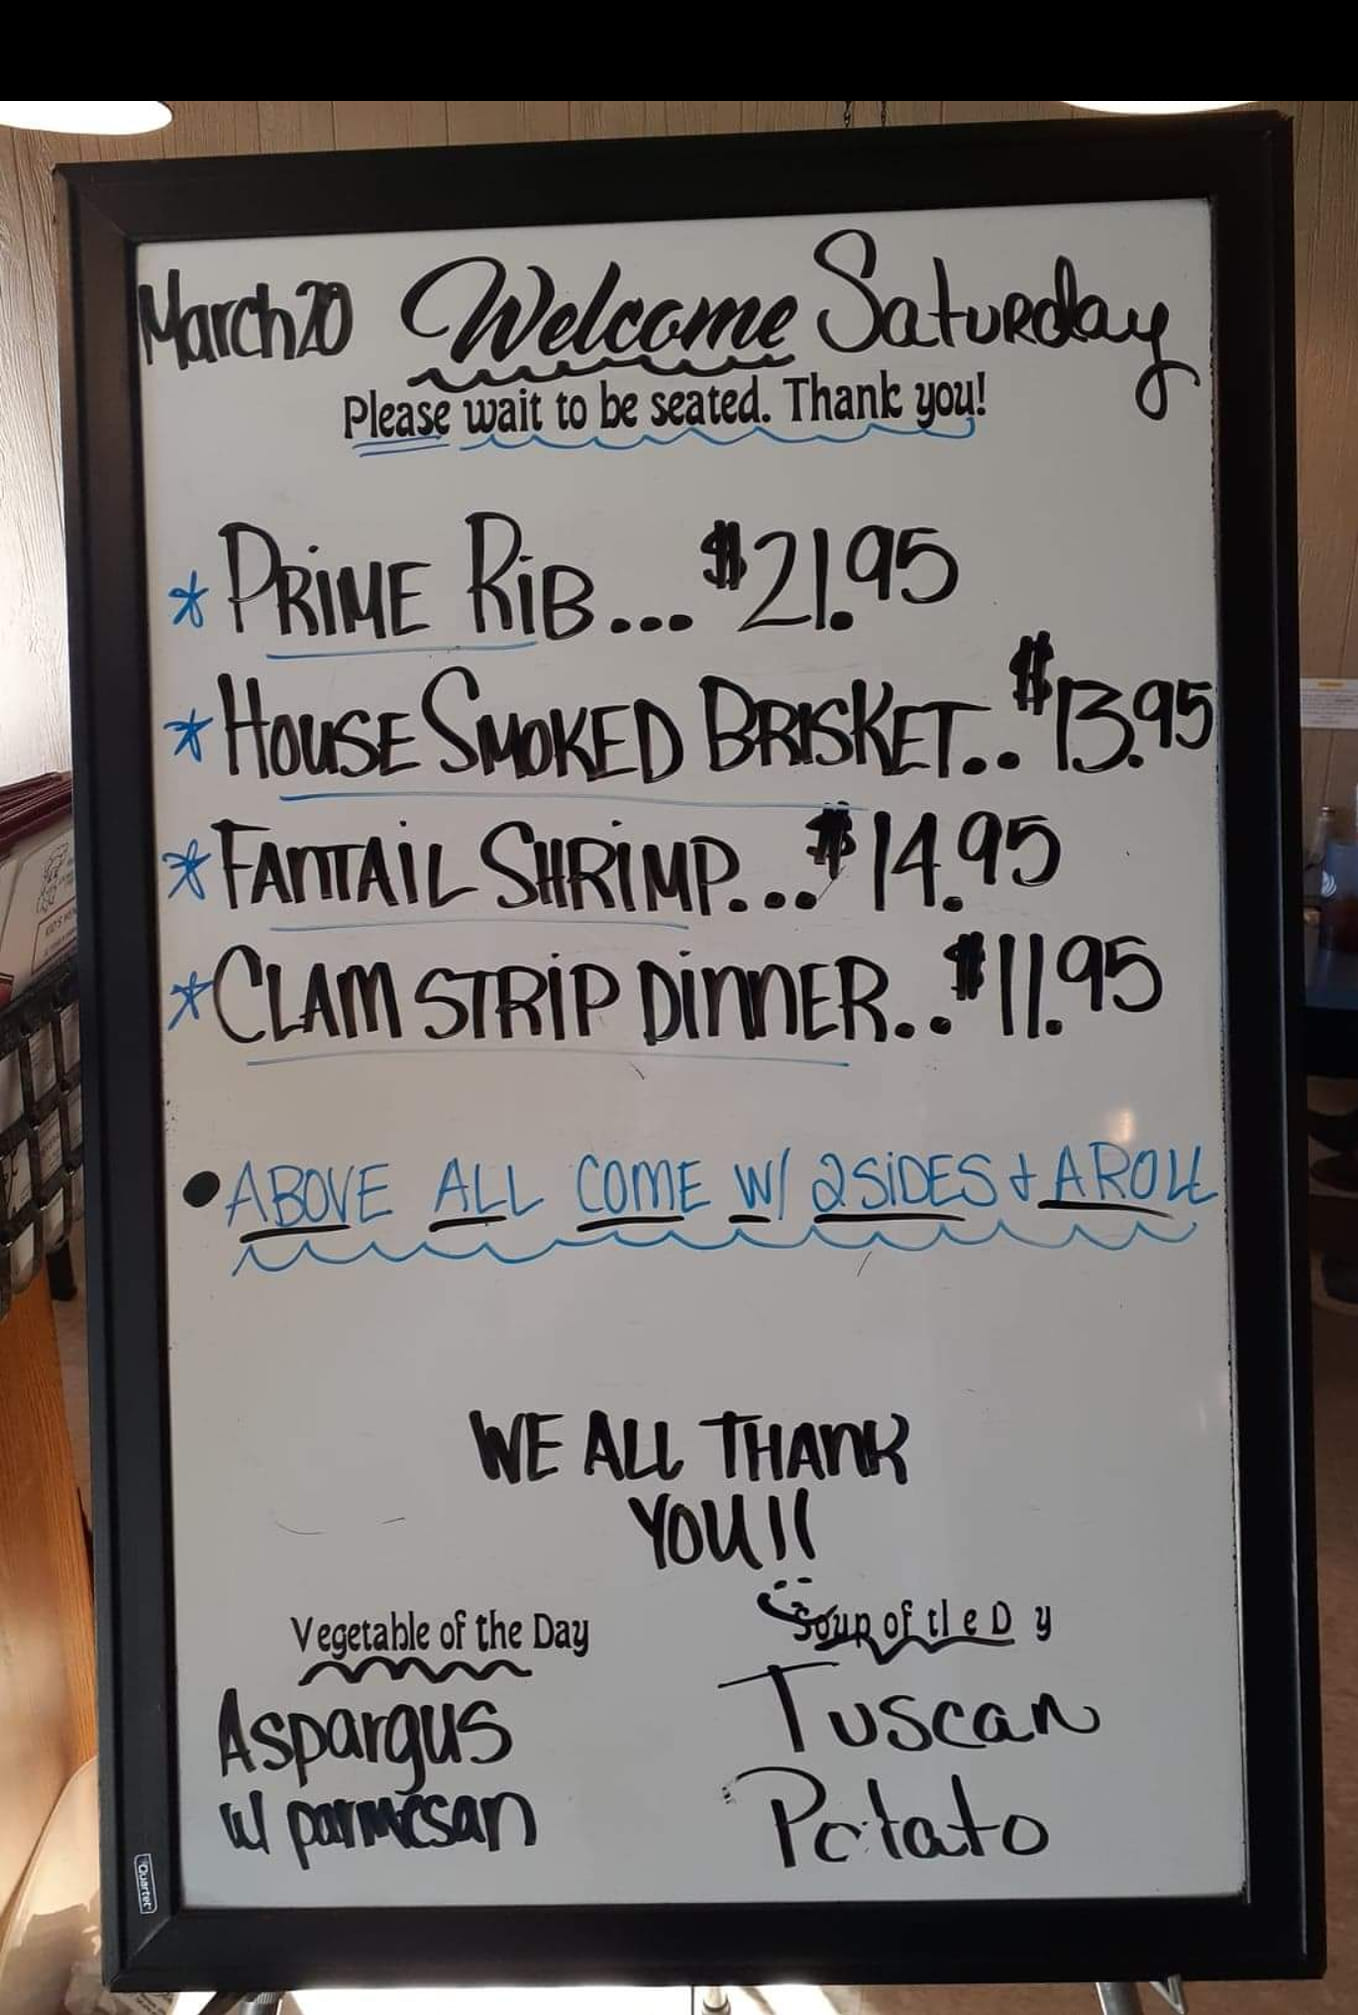 March 20 Welcome Saturday
Please wait to be seated. Thank you!
* PRIME RIB... $21.95
* HOUSE SMOKED BRISKET.. $13.95
* FANTAIL SHRIMP... $14.95
* CLAM STRIP DINNER.. $11.95
• ABOVE ALL COME W/ 2 SIDES + A ROLL
WE ALL THANK
YOU!!
Vegetable of the Day
Aspargus
w/ parmesan
Soup of tl e D y
Tuscan
Potato
Quartet